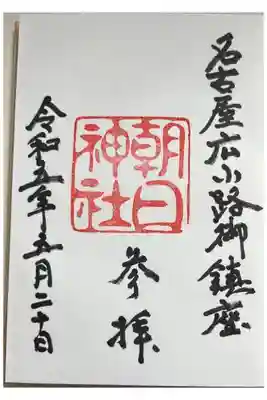 名古屋広小路御鎮座
朝日神社
参拝
令和五年五月二十日